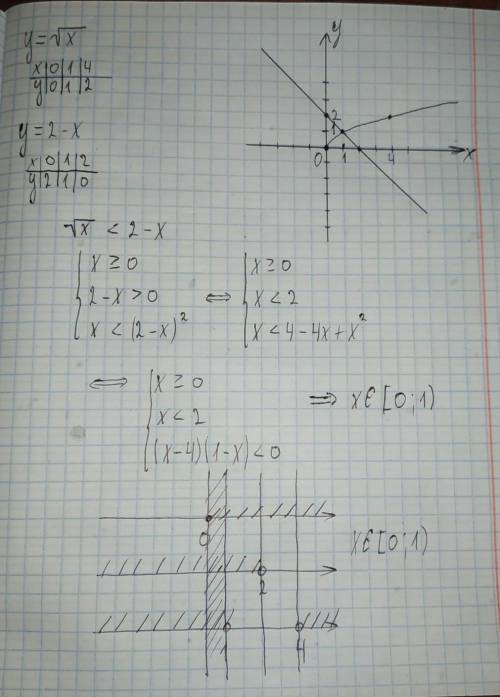 y=√x
x|0|1|4
y|0|1|2
y=2-x
x|0|1|2
y|2|1|0
y
2
1
0 1 4 x
√x < 2-x
{ x ≥ 0
2-x > 0
x < (2-x)²
⇔
{ x ≥ 0
x < 2
x < 4-4x+x²
⇔
{ x ≥ 0
x < 2
(x-4)(1-x) < 0
⇒ x∈[0;1)
0
2
x∈[0;1)
1 4